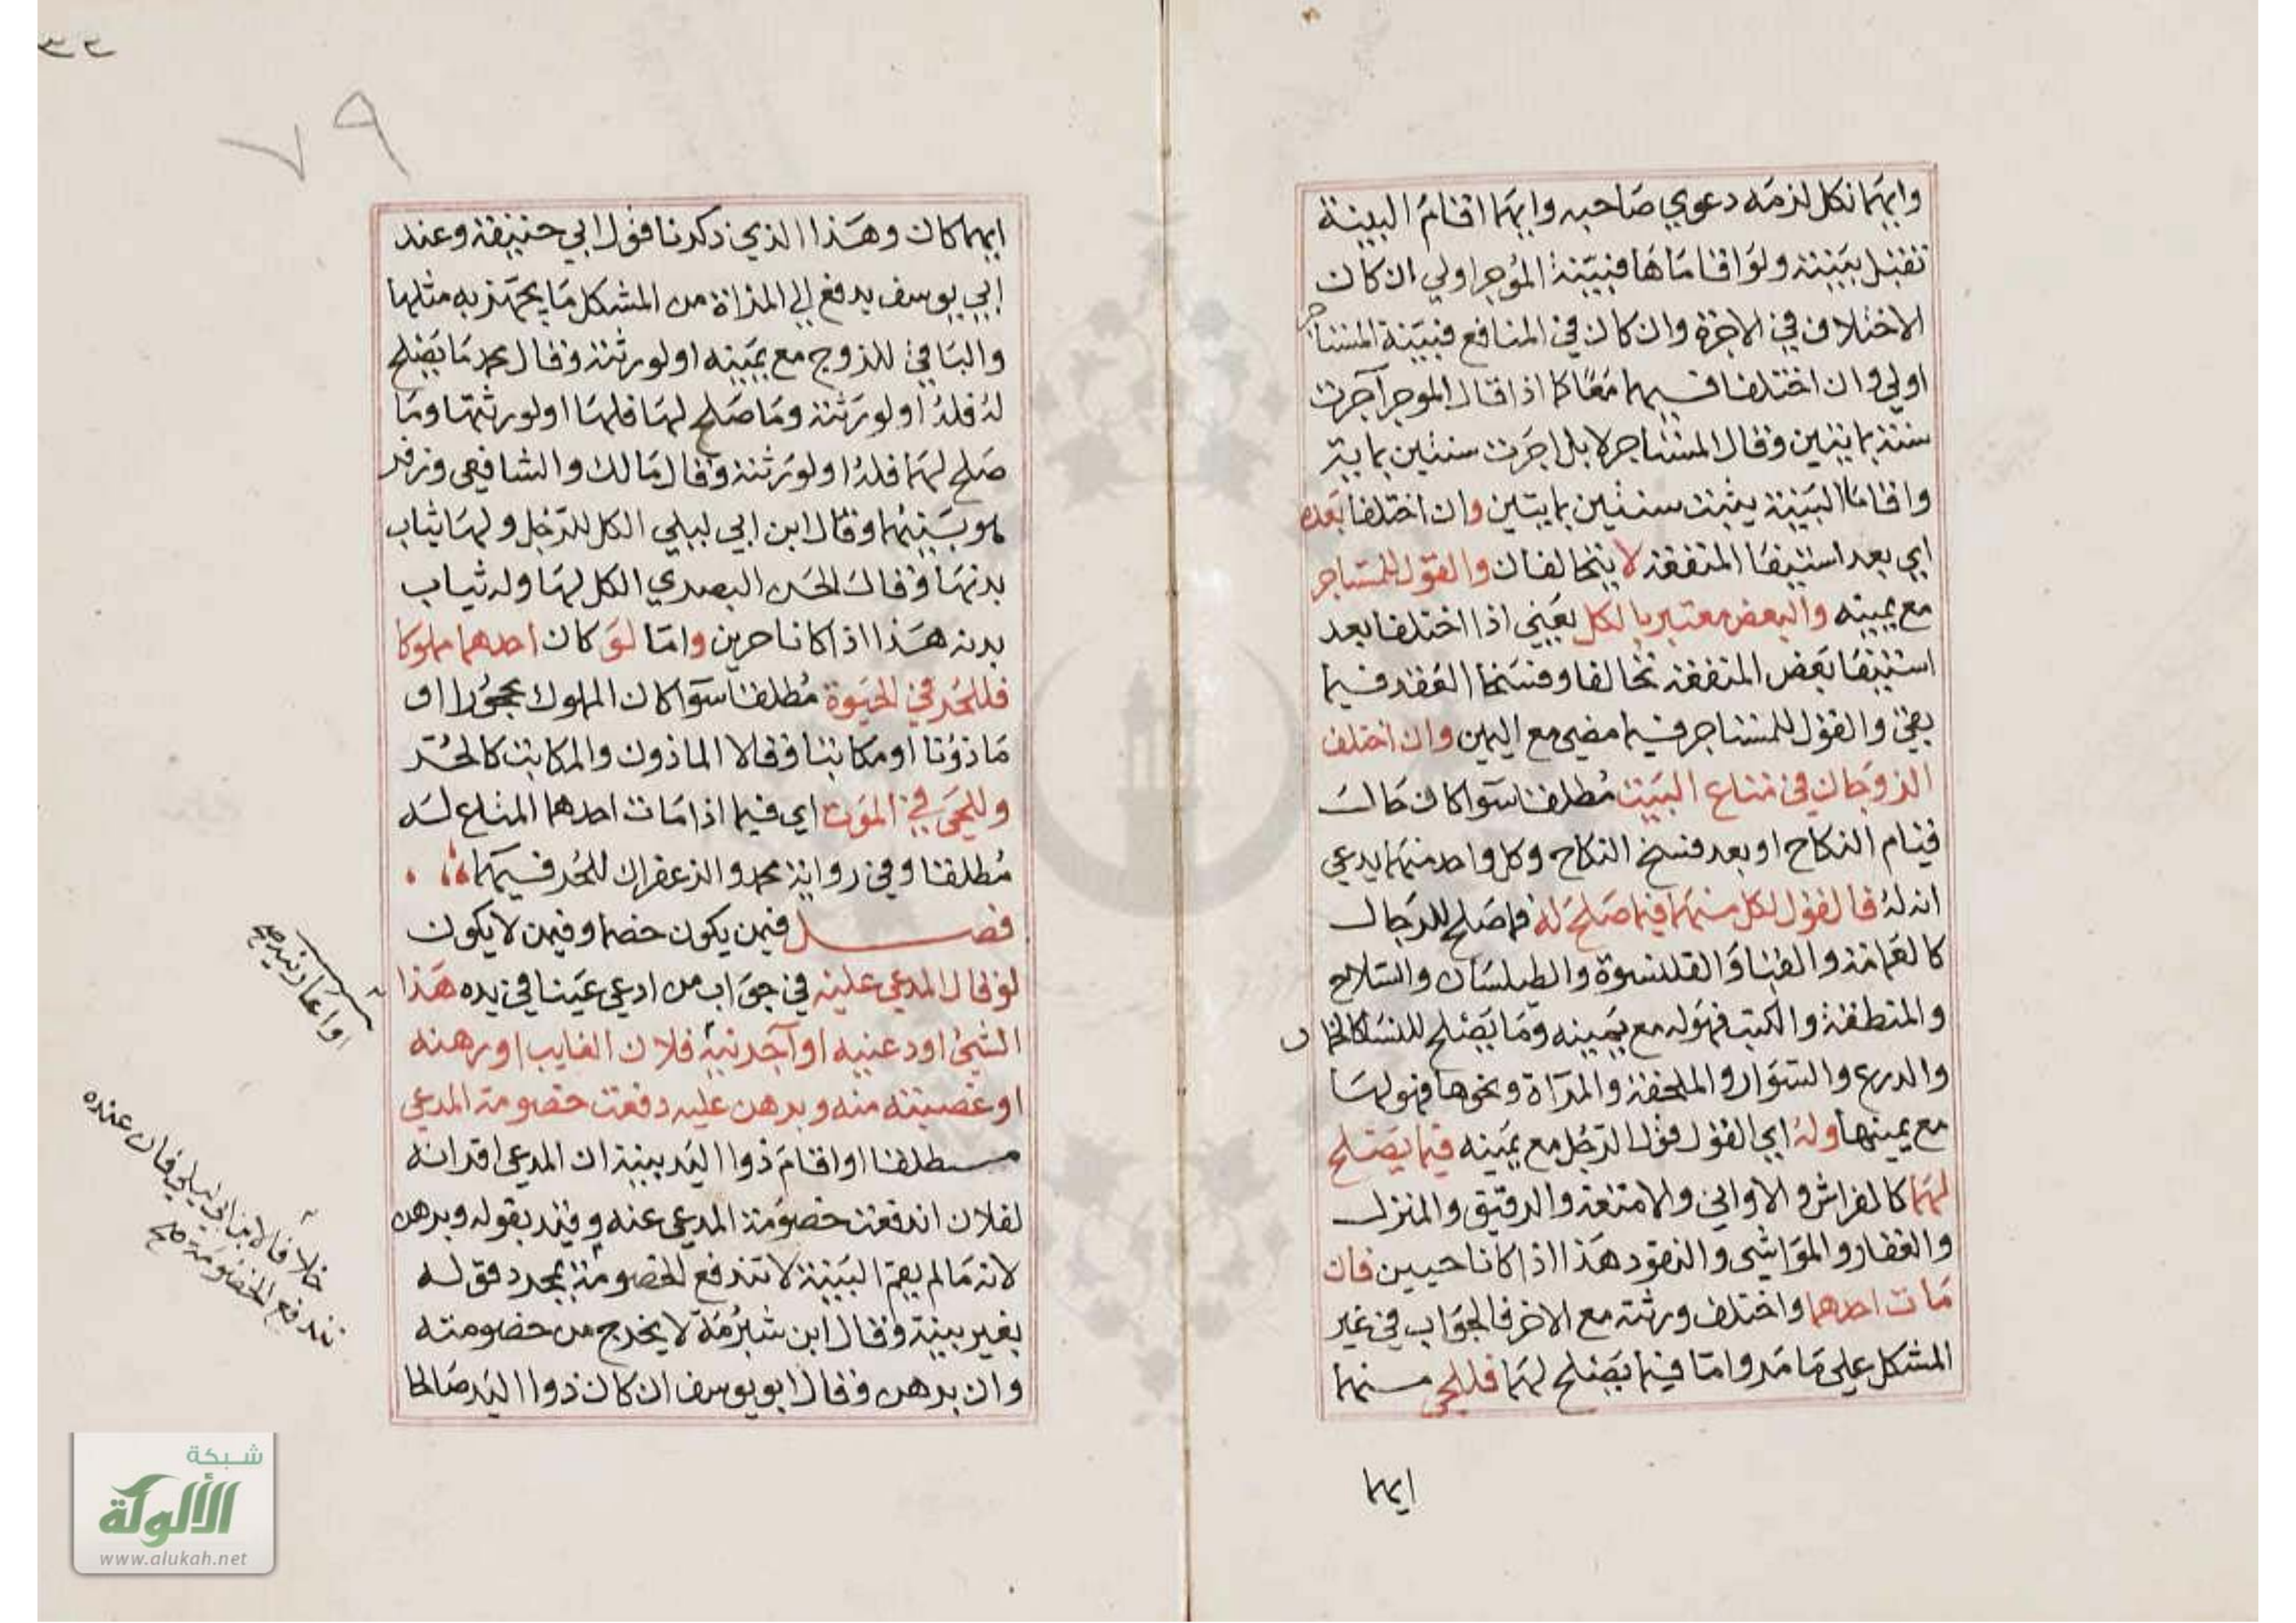 وايهما نكل لزمه دعوي صاحبه وايهما اقام البينة
تقبل بينته ولو اقاماها فبينة المؤجر اولي ان كان
الاختلاف في الاجرة وان كان في المنافع فبينة المستاجر
اولي وان اختلفا فيهما معا كما اذا قال الموجر آجرت
سنة بمايتين وقال المستاجر لا بل اجرت سنتين بماية
واقاما البينة يثبت سنتين بمايتين وان اختلفا بعده
اي بعد استيفا المنفعة لا يتحالفان والقول للمستاجر
مع يمينه والبعض معتبر بالكل يعني اذا اختلفا بعد
استيفا بعض المنفعة تحالفا وفسخا العقد فيما
بقي والقول للمستاجر فيما مضي مع اليمين وان اختلف
الزوجان في متاع البيت مطلقا سوا كان حالـ
قيام النكاح او بعد فسخ النكاح وكل واحد منهما يدعي
انه له فالقول لكل منهما فيما صلح له فما صلح للرجال
كالعمامة والقبا والقلنسوة والطيلسان والسلاح
والمنطقة والكتب فهو له مع يمينه وما يصلح للنسا كالخمار
والدرع والسوار والملحفة والمرآة ونحوها فهو لها
مع يمينها وله اي القول قول الرجل مع يمينه فيما يصلح
لهما كالفراش والاواني والامتعة والرقيق والمنزل
والعقار والمواشي والنقود هذا اذا كانا حيين فان
مات احدهما واختلف ورثته مع الاخر فالجواب في غير
المشكل علي ما مر واما فيما يصلح لهما فللحي منهما
ايهما
٧٩
ايهما كان وهذا الذي ذكرنا قول ابي حنيفة وعند
ابي يوسف يدفع الي المراة من المشكل ما يجهز به مثلها
والباقي للزوج مع يمينه او لورثته وقال محمد ما يصلح
له فله او لورثته وما صلح لها فلها او لورثتها وما
صلح لهما فله او لورثته وقال مالك والشافعي وزفر
هو بينهما وقال ابن ابي ليلي الكل للرجل ولها ثياب
بدنها وقال الحسن البصري الكل لها وله ثياب
بدنه هذا اذا كانا حرين واما لو كان احدهما مملوكا
فللحر في الحيوة مطلقا سوا كان المملوك محجورا او
ماذونا او مكاتبا وقالا الماذون والمكاتب كالحر
وللحي في الموت اي فيما اذا مات احدهما المتاع له
مطلقا وفي رواية محمد والزعفران للحر فيهما
فصل فيمن يكون خصما وفيمن لا يكون
لو قال المدعي عليه في جواب من ادعي عينا في يده هذا
الشيئ اودعنيه او آجرنيه فلان الغايب او رهنه
او غصبته منه وبرهن عليه دفعت خصومة المدعي
مطلقا او اقام ذوا اليد بينة ان المدعي اقر انه
لفلان اندفعت خصومة المدعي عنه وقيد بقوله وبرهن
لانه ما لم يقم البينة لا تندفع الخصومة بمجرد قوله
بغير بينة وقال ابن شبرمة لا يخرج من خصومته
وان برهن وقال ابو يوسف ان كان ذوا اليد صالحا
او اعارنيه صح
خلافا لابن ابي ليلي فان عنده
تندفع الخصومة صح
شبكة
الألوكة
www.alukah.net